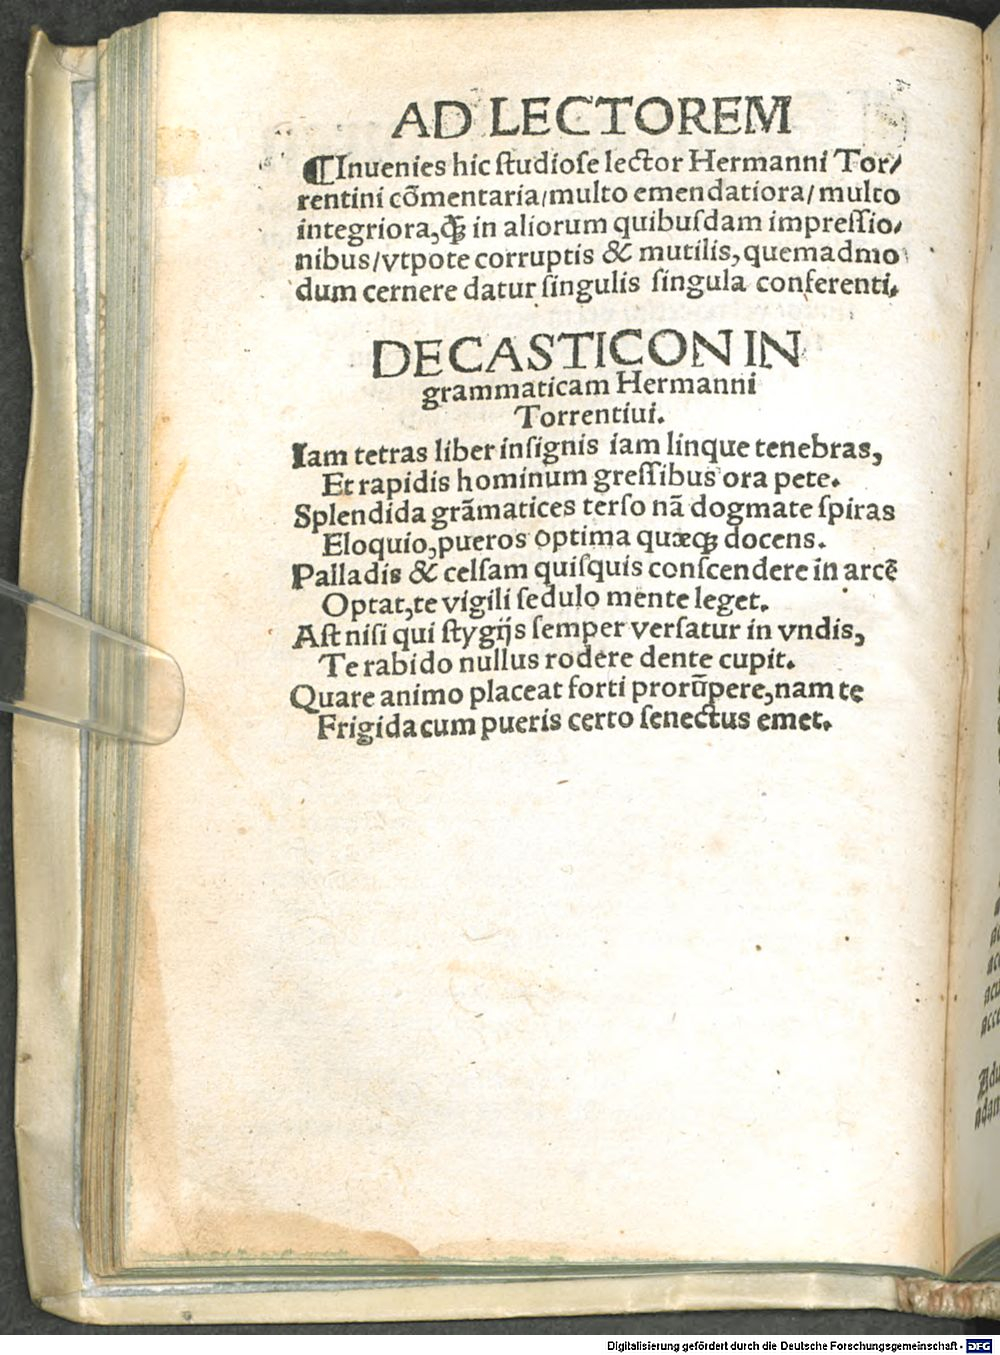 AD LECTOREM
¶Inuenies hic ſtudioſe lector Hermanni Tor/
rentini cõmentaria/multo emendatiora/multo
integriora,q̃ꝫ in aliorum quibuſdam impreſſio/
nibus/vtpote corruptis & mutilis,quemadmo
dum cernere datur ſingulis ſingula conferenti.
DECASTICON IN
grammaticam Hermanni
Torrentiui.
Iam tetras liber inſignis iam linque tenebras,
Et rapidis hominum greſſibus ora pete.
Splendida grãmatices terſo nã dogmate ſpiras
Eloquio,pueros optima quæqꝫ docens.
Palladis & celſam quiſquis conſcendere in arcẽ
Optat,te vigili ſedulo mente leget.
Aſt niſi qui ſtygijs ſemper verſatur in vndis,
Te rabido nullus rodere dente cupit.
Quare animo placeat forti prorũpere,nam te
Frigida cum pueris certo ſenectus emet.
Digitalisierung gefördert durch die Deutsche Forschungsgemeinschaft - DFG